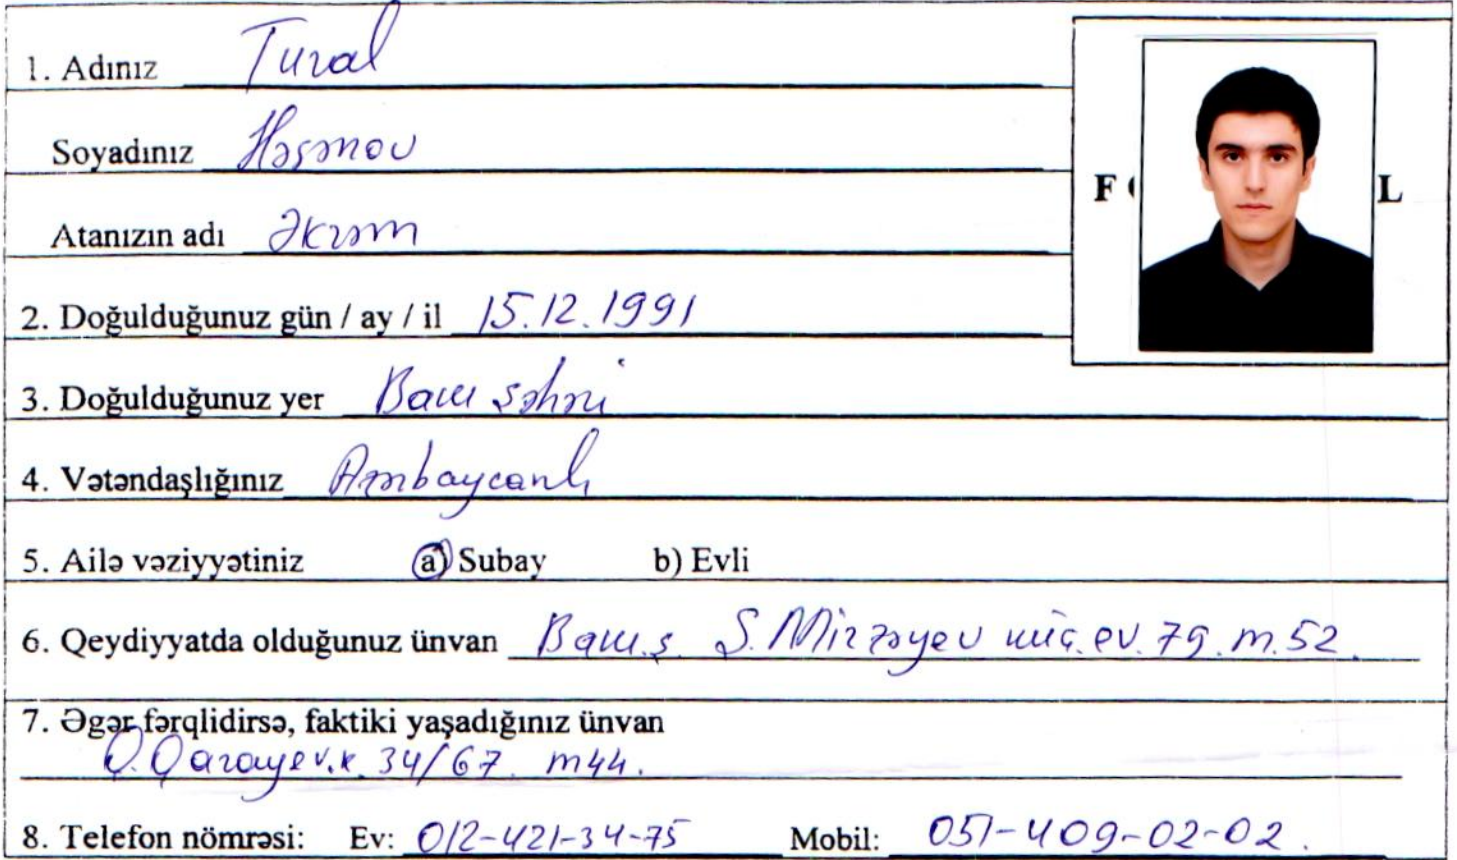 1. Adınız Tural
Soyadınız Həsənov
Atanızın adı Əkrəm
2. Doğulduğunuz gün / ay / il 15.12.1991
3. Doğulduğunuz yer Bakı şəhəri
4. Vətəndaşlığınız Azərbaycanlı
5. Ailə vəziyyətiniz a) Subay b) Evli
6. Qeydiyyatda olduğunuz ünvan Bakı.ş. S.Mirzəyev küç. ev. 79. m.52.
7. Əgər fərqlidirsə, faktiki yaşadığınız ünvan
Q.Qarayev.k. 34/67 m44.
8. Telefon nömrəsi: Ev: 012-421-34-75 Mobil: 051-409-02-02.